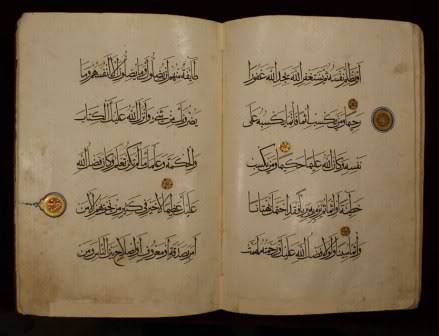 أو يظلم نفسه ثم يستغفر الله يجد الله غفورا
رحيما ومن يكسب إثما فإنما يكسبه على
نفسه وكان الله عليما حكيما ومن يكسب
خطيئة أو إثما ثم يرم به بريئا فقد احتمل بهتانا
وإثما مبينا ولولا فضل الله عليك ورحمته لهمت
طائفة منهم أن يضلوك وما يضلون إلا أنفسهم وما
يضرونك من شيء وأنزل الله عليك الكتاب
والحكمة وعلمك ما لم تكن تعلم وكان فضل الله
عليك عظيما لا خير في كثير من نجواهم إلا من
أمر بصدقة أو معروف أو إصلاح بين الناس ومن